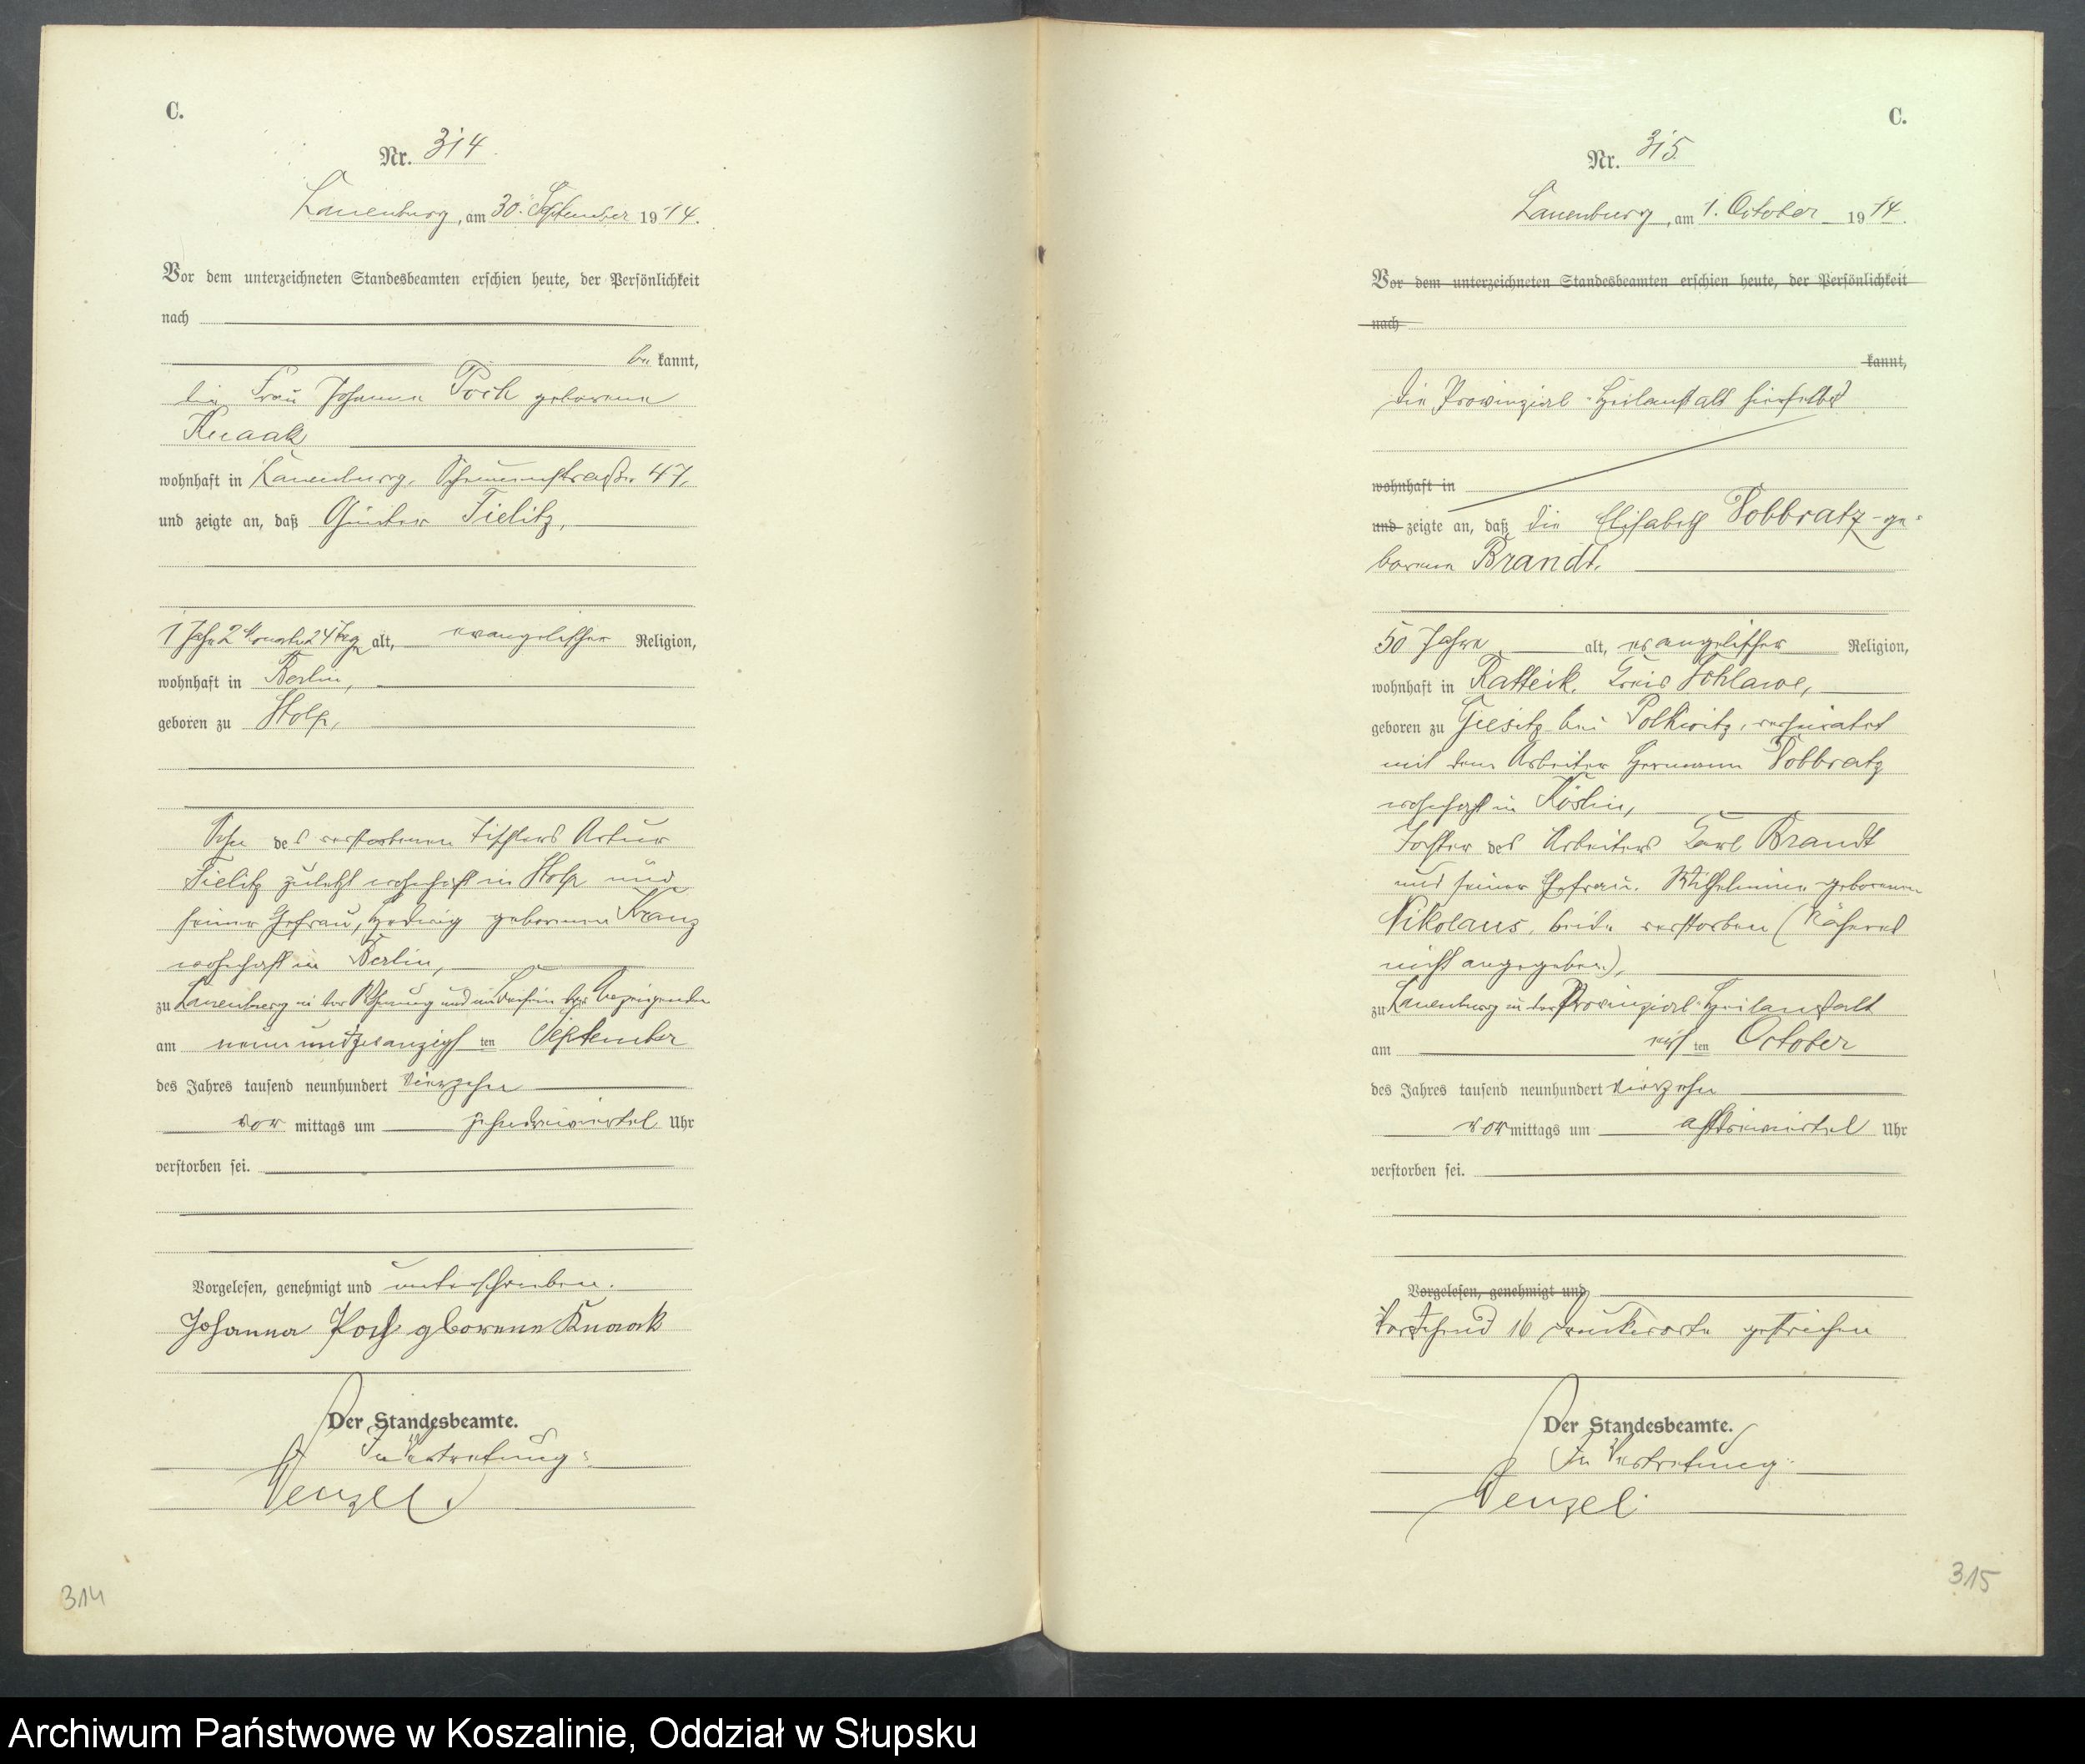 C.
Nr. 314
Lauenburg, am 30. September 1914.
Vor dem unterzeichneten Standesbeamten erschien heute, der Persönlichkeit
nach
bekannt,
die Frau Johanna Poch geborene
Knaak
wohnhaft in Lauenburg, Scheunenstraße 47,
und zeigte an, daß Günter Tielitz,
1 Jahr 2 Monate 24 Tage alt, evangelischer Religion,
wohnhaft in Berlin,
geboren zu Stolp,
Sohn des verstorbenen Tischlers Artur
Tielitz zuletzt wohnhaft in Stolp und
seiner Ehefrau, Hedwig geborenen Kranz
wohnhaft in Berlin,
zu Lauenburg in der Wohnung und im Beisein der Anzeigenden
am neunundzwanzigsten September
des Jahres tausend neunhundert vierzehn
vormittags um zehndreiviertel Uhr
verstorben sei.
Vorgelesen, genehmigt und unterschrieben.
Johanna Poch geborene Knaak
Der Standesbeamte.
In Vertretung:
Wenzel.
314
C.
Nr. 315
Lauenburg, am 1. October 1914.
Vor dem unterzeichneten Standesbeamten erschien heute, der Persönlichkeit
nach
kannt,
Die Provinzial-Heilanstalt hierselbst
wohnhaft in
und zeigte an, daß die Elisabeth Vobbratz ge-
borene Brandt,
50 Jahre alt, evangelischer Religion,
wohnhaft in Ratteick, Kreis Schlawe,
geboren zu Giesitz bei Polkwitz, verheiratet
mit dem Arbeiter Hermann Vobbratz
wohnhaft in Köslin,
Tochter des Arbeiters Carl Brandt
und seiner Ehefrau, Wilhelmine geborenen
Nikolaus, beide verstorben (Näheres
nicht angegeben),
zu Lauenburg in der Provinzial-Heilanstalt
am ersten October
des Jahres tausend neunhundert vierzehn
vormittags um achtdreiviertel Uhr
verstorben sei.
Vorgelesen, genehmigt und
Vorstehend 16 Druckworte gestrichen
Der Standesbeamte.
In Vertretung:
Wenzel.
315
Archiwum Państwowe w Koszalinie, Oddział w Słupsku